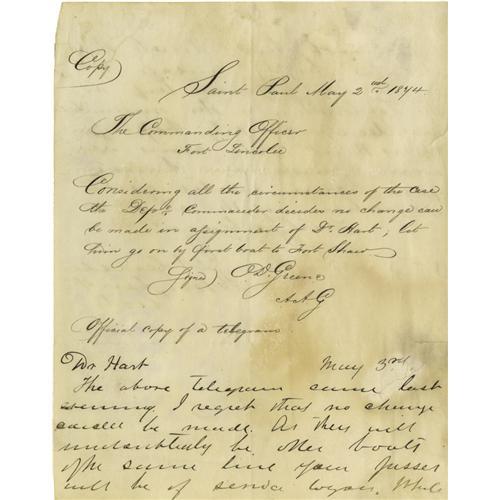 Copy
Saint Paul May 2nd 1874.
The Commanding Officer
Fort Lincoln
Considering all the circumstances of the case
the Dept. Commander decides no change can
be made in assignment of Dr. Hart, let
him go on by first boat to Fort Shaw
Signed O.D. Greene
AAG
Official copy of a telegram.
Dr Hart May 3rd.
The above telegram came last
evening. I regret that no change
could be made. As they will
undoubtedly be other boats
of the same line your passes
will be of service